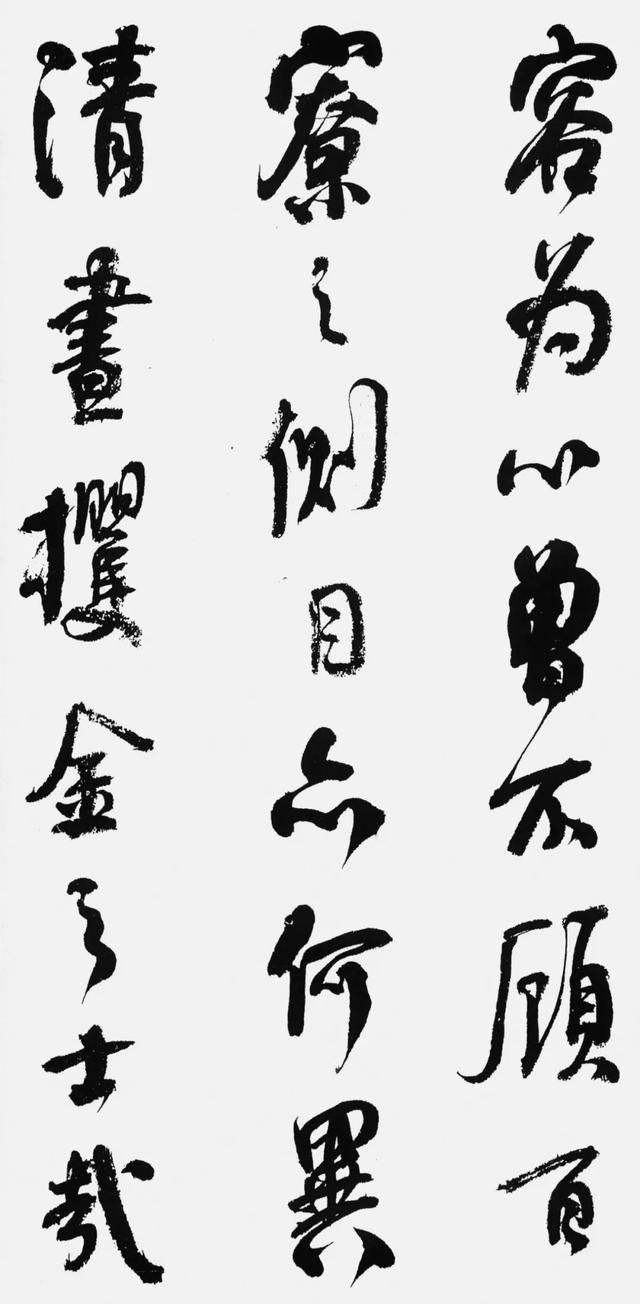 容為心曾不顧百
寮之側目亦何異
清晝攫金之士哉